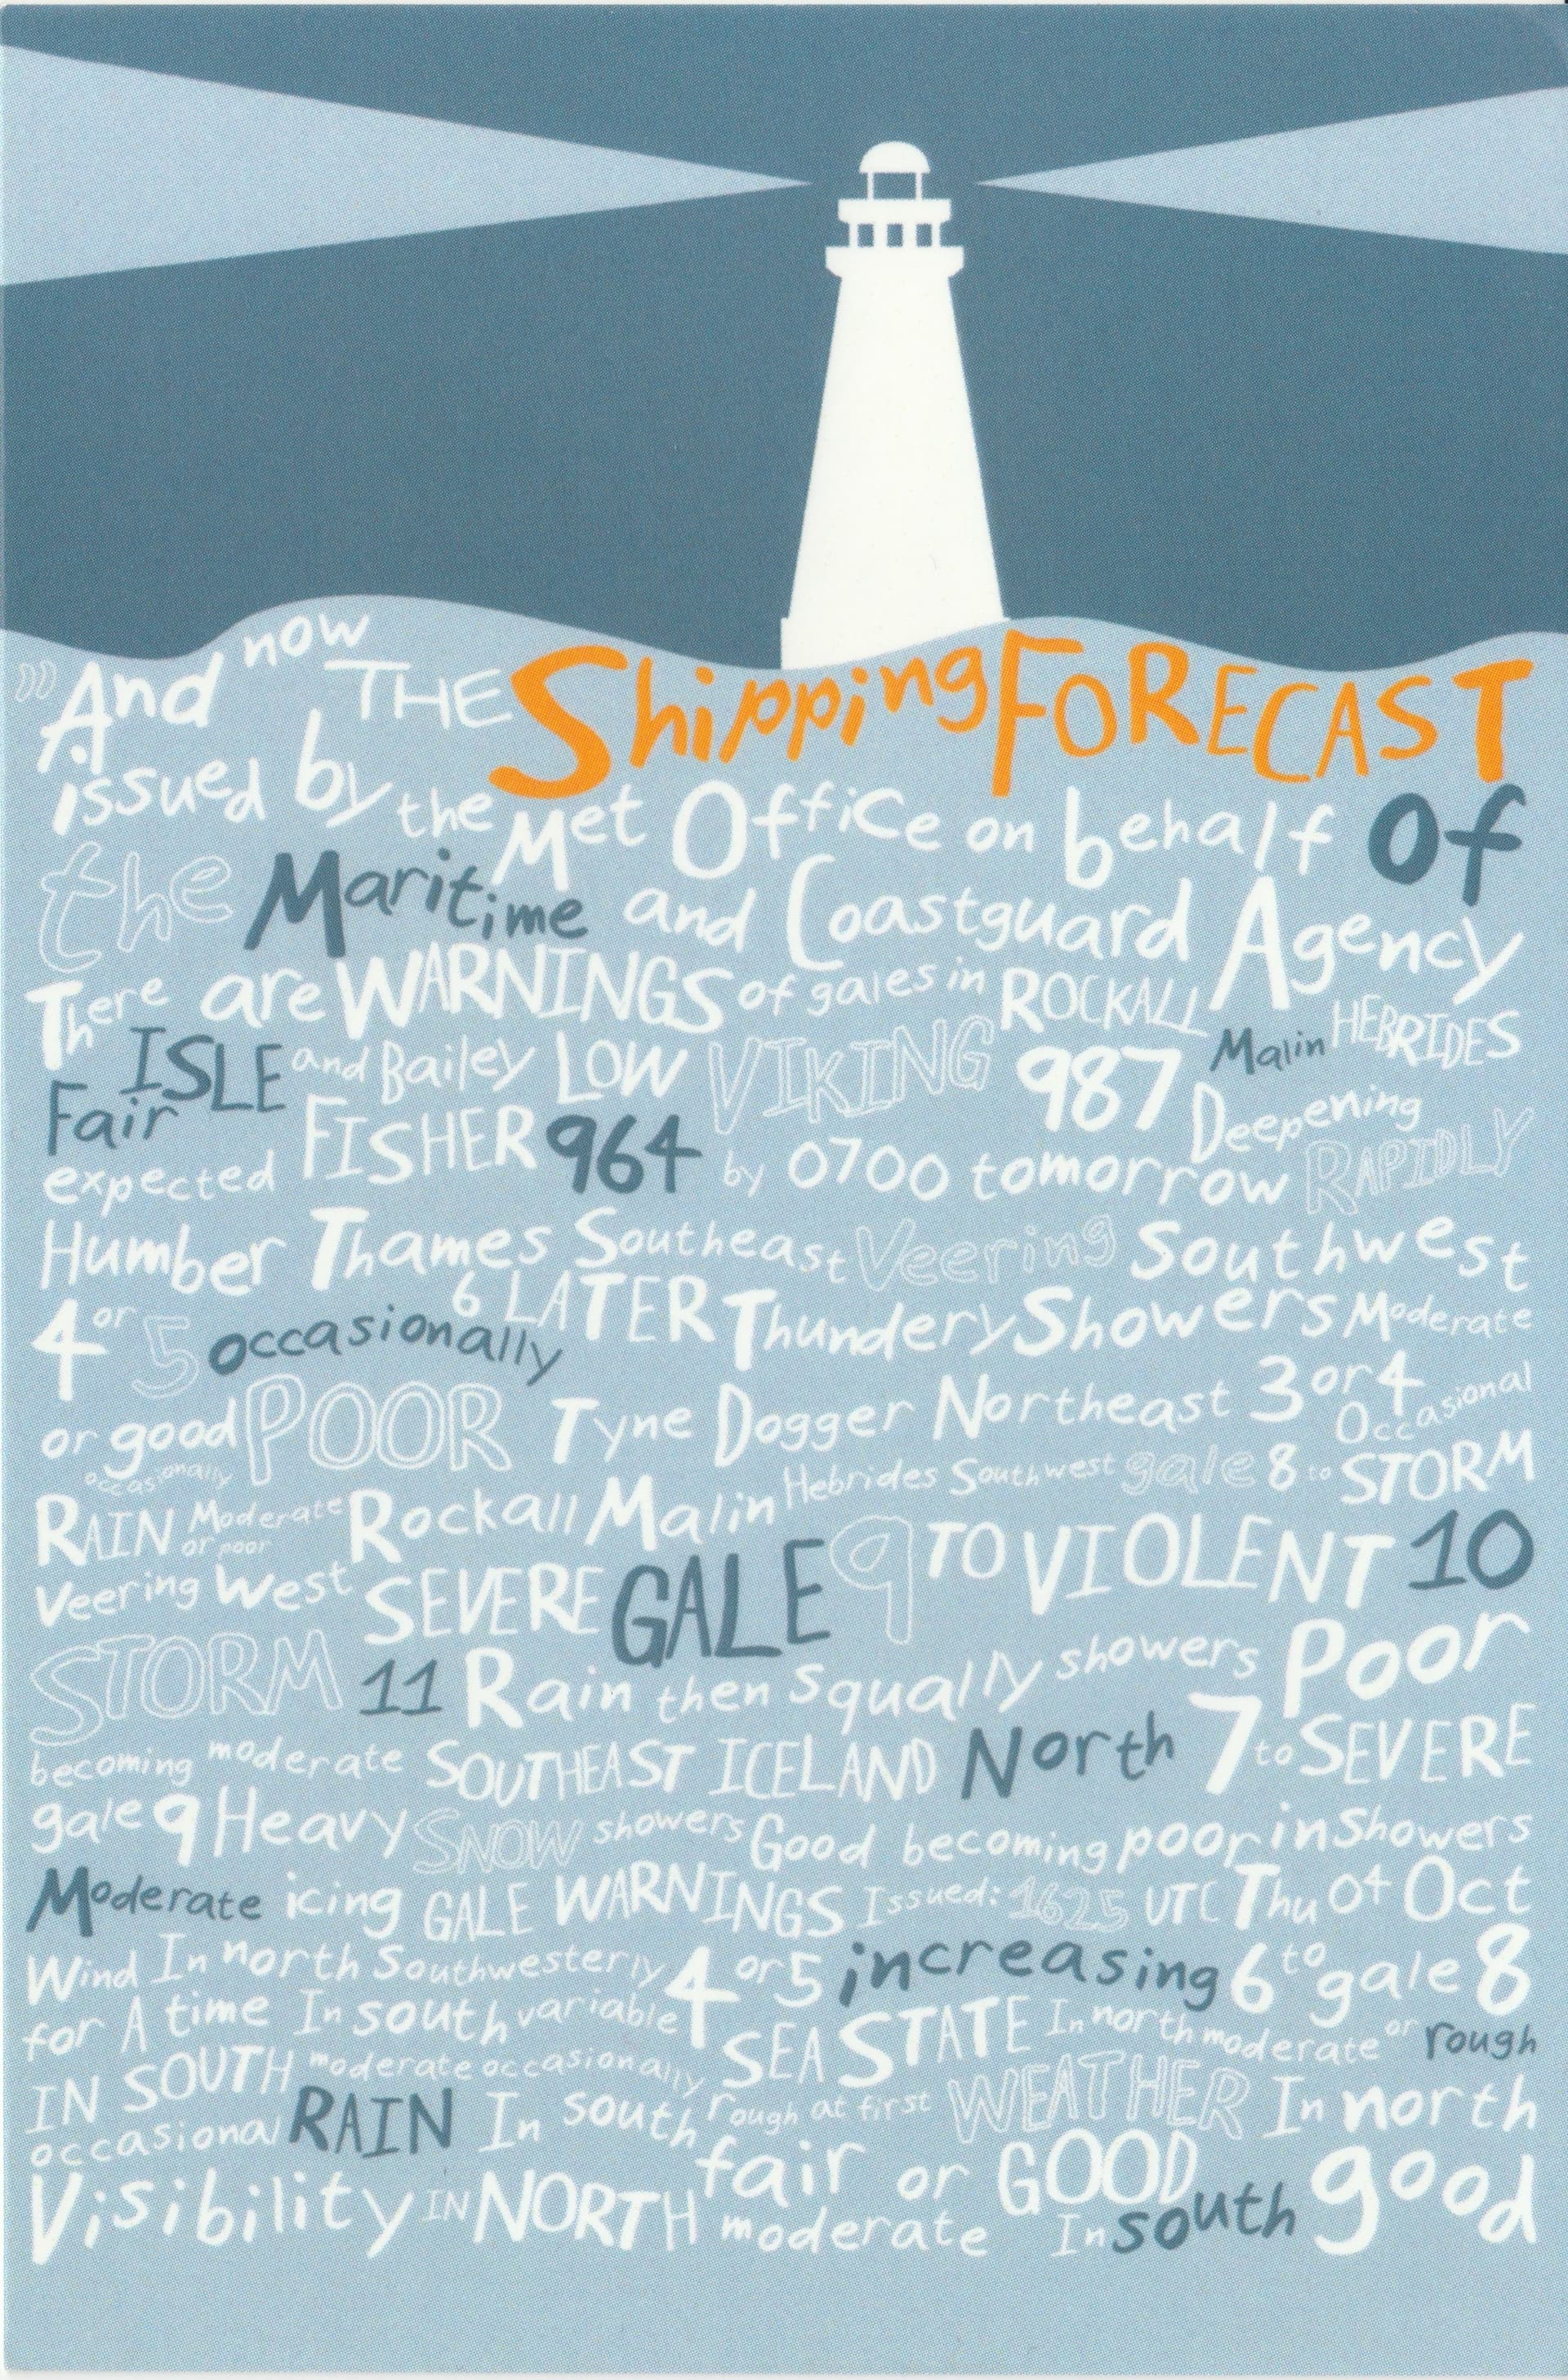 "And now THE Shipping FORECAST
issued by the Met Office on behalf of
the Maritime and Coastguard Agency
There are WARNINGS of gales in ROCKALL Malin HEBRIDES
Fair ISLE and Bailey LOW VIKING 987 Deepening RAPIDLY
expected FISHER 964 by 0700 tomorrow
Humber Thames Southeast Veering Southwest
4 or 5 occasionally 6 LATER Thundery Showers Moderate
or good occasionally POOR Tyne Dogger Northeast 3 or 4 Occasional
RAIN Moderate or poor Rockall Malin Hebrides Southwest gale 8 to STORM 10
Veering West SEVERE GALE 9 TO VIOLENT
STORM 11 Rain then squally showers Poor
becoming moderate SOUTHEAST ICELAND North 7 to SEVERE
gale 9 Heavy SNOW showers Good becoming poor in Showers
Moderate icing GALE WARNINGS Issued: 1625 UTC Thu 04 Oct
Wind In north Southwesterly 4 or 5 increasing 6 to gale 8
for A time In south variable 4 SEA STATE In north moderate or rough
IN SOUTH moderate occasionally rough at first WEATHER In north
occasional RAIN In south fair or GOOD
Visibility IN NORTH moderate or good In south good